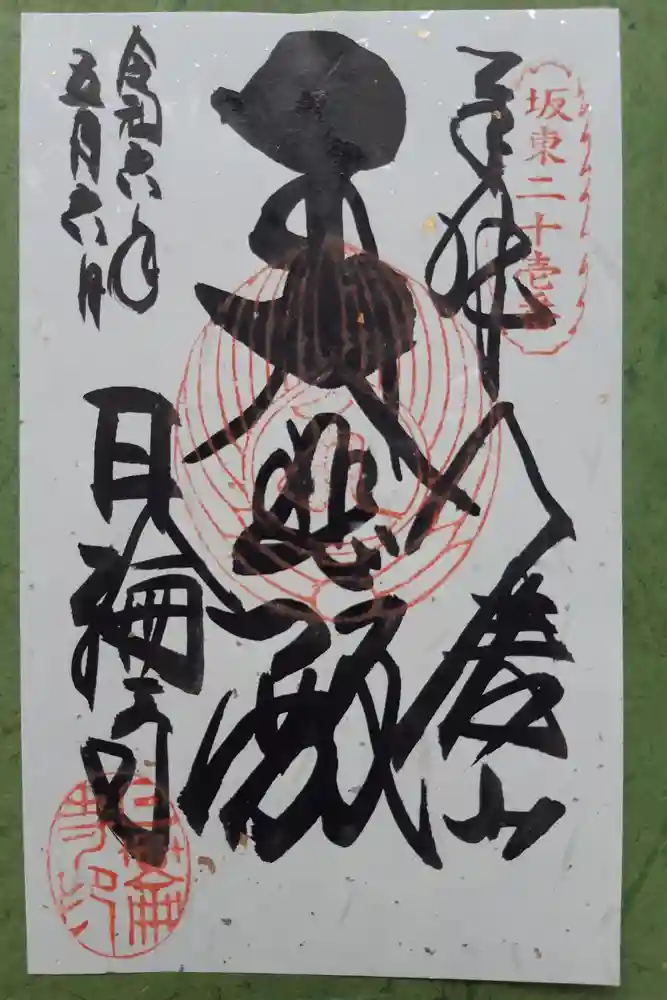 坂東二十壱番
奉拝
八溝山
大悲殿
令和六年
五月六日
日輪寺
日輪寺印